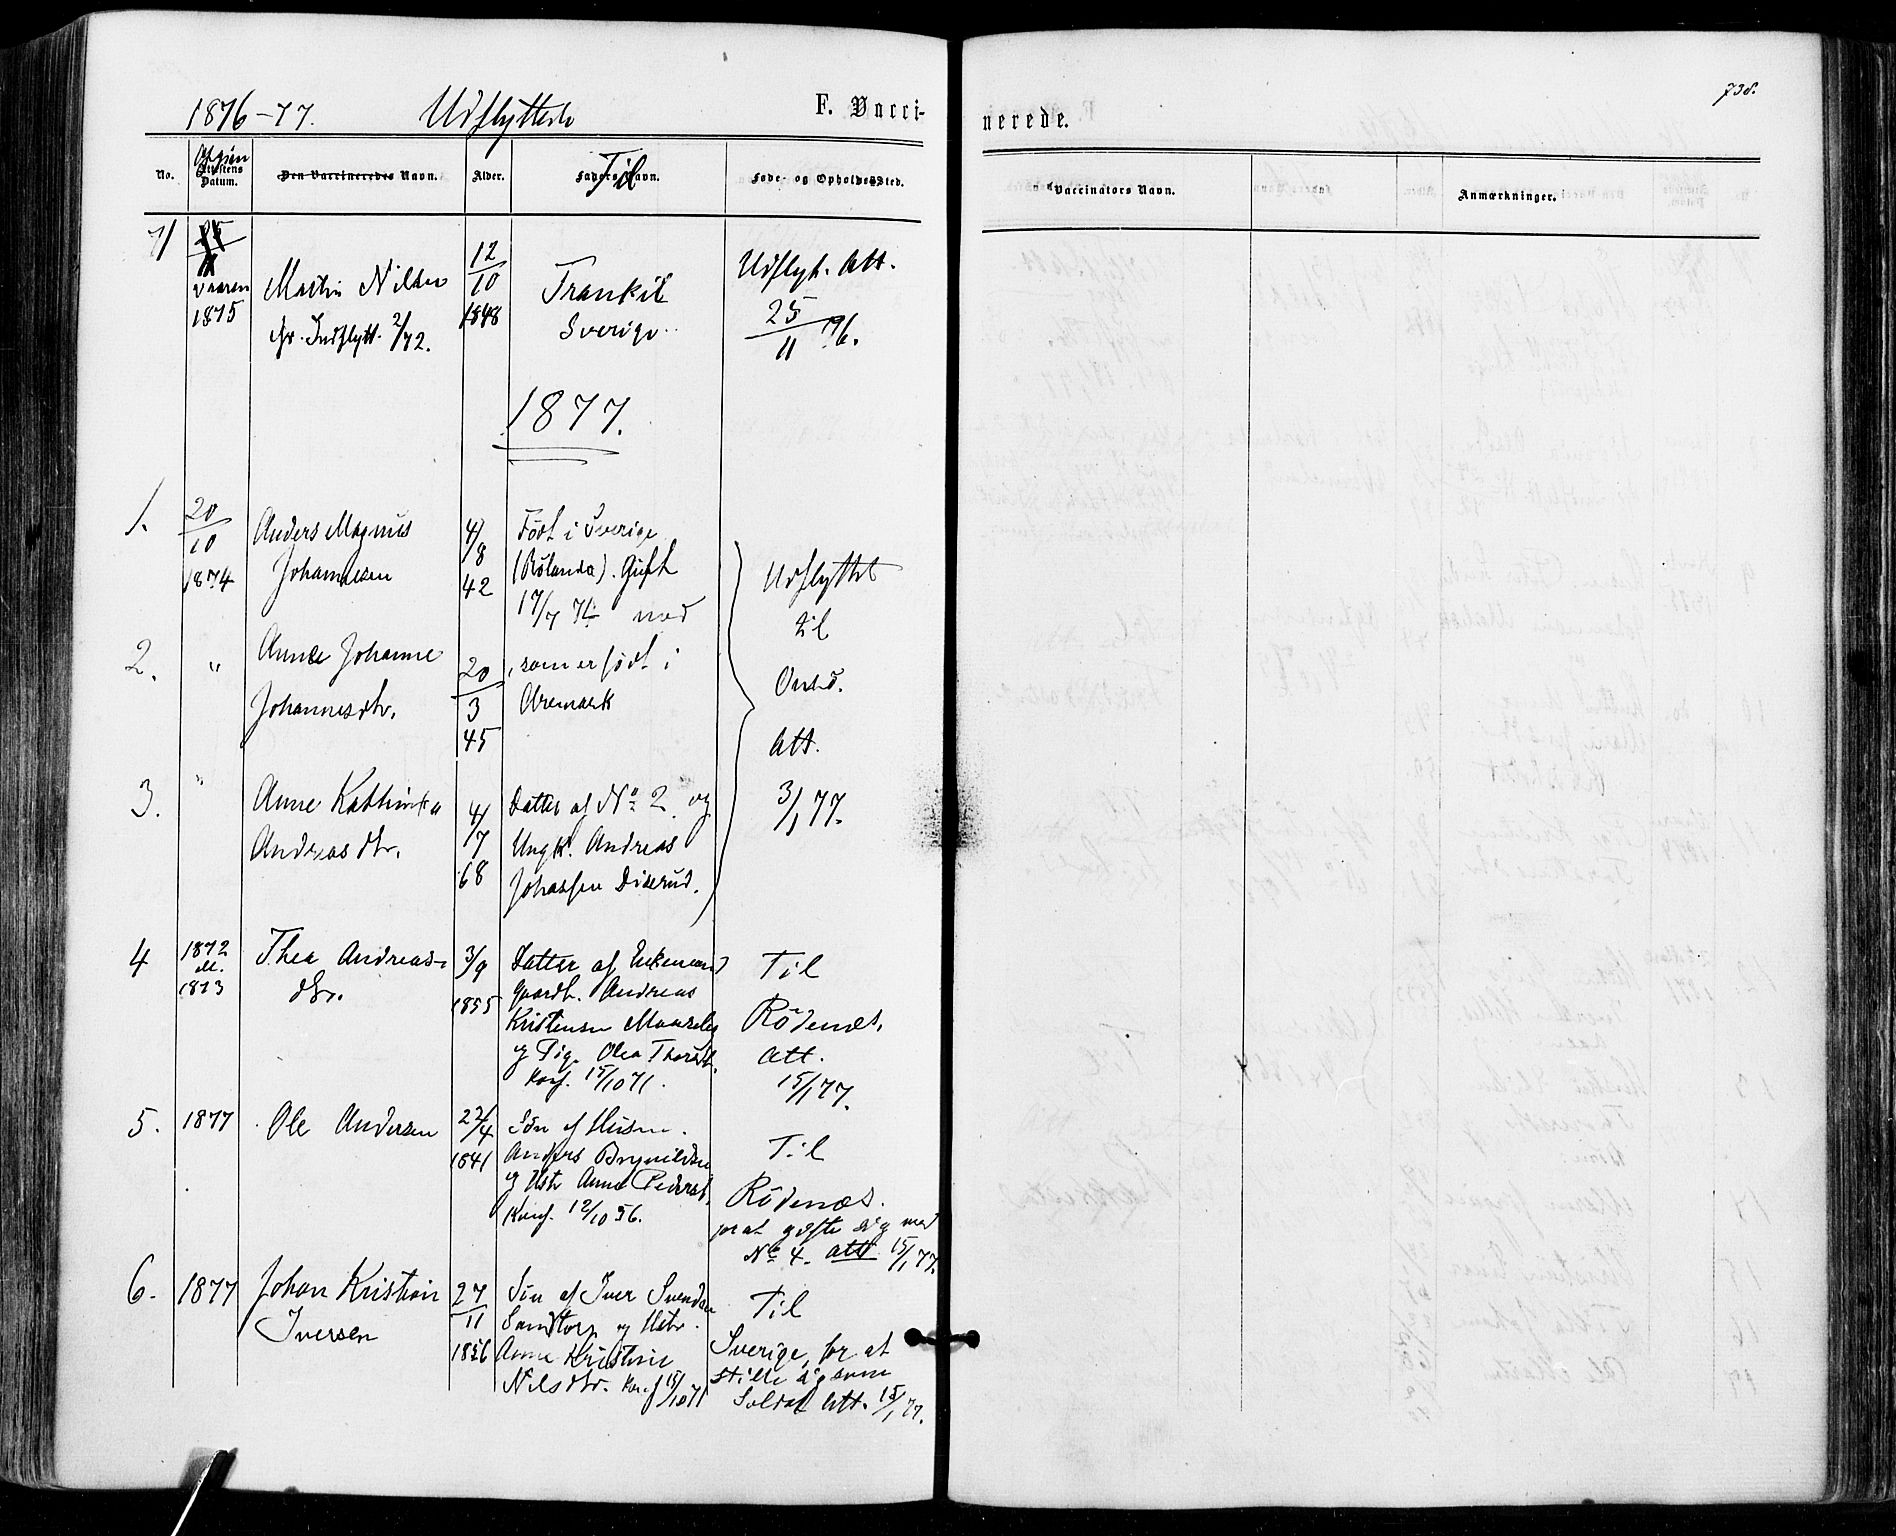 738.
1876-77. Udflyttede F. Vacci-
nerede.
No. Attestens Datum. Den Vaccineredes Navn. Alder. Faders Navn. Til Føde- og Opholdssted.
Vaccinators Navn. Anmærkninger.
71 Vaaren 1875
Martin Nilsen
Indflytt. 2/72.
12/10 1848
Trankil
Sverige.
Udflyt. Att.
25/11 76.
1877.
1. 20/10 1874
Anders Magnus
Johannesen
4/8 42
Født i Sverige
(Rölanda). Gift
17/7 74 med
2. "
Anne Johanne
Johannesdtr.
20/3 45
, som er født i
Aremark
3. "
Anne Kathinka
Andreasdtr.
4/7 68
Datter af No 2 og
Ungk. Andreas
Johassen Diserud.
Udflyttet
til
Onsø.
Att.
3/1 77.
4 1872 el. 1873
Thea Andreas-
dtr.
3/9 1855
Datter af Enkemand
Gaardbr. Andreas
Kristensen
og Pig. Olea Thorst.
Konf. 15/10 71.
Til
Rödenæs.
Att.
15/1 77.
5. 1877
Ole Andersen
22/4 1841
Sön af Husm.
Anders Brynildsen
og Hstr Anne Pedersd.
Konf. 12/10 56.
Til
Rödenæs.
for at gifte sig med
No 4. Att 15/1 77.
6. 1877
Johan Kristian
Iversen
27/11 1856
Sön af Iver Svendsen
Sandtorp og Hstr.
Anne Kristine
Nilsdtr. Konf 15/10 71
Til
Sverige, for at
stille sig som
Soldat Att. 15/1 77.